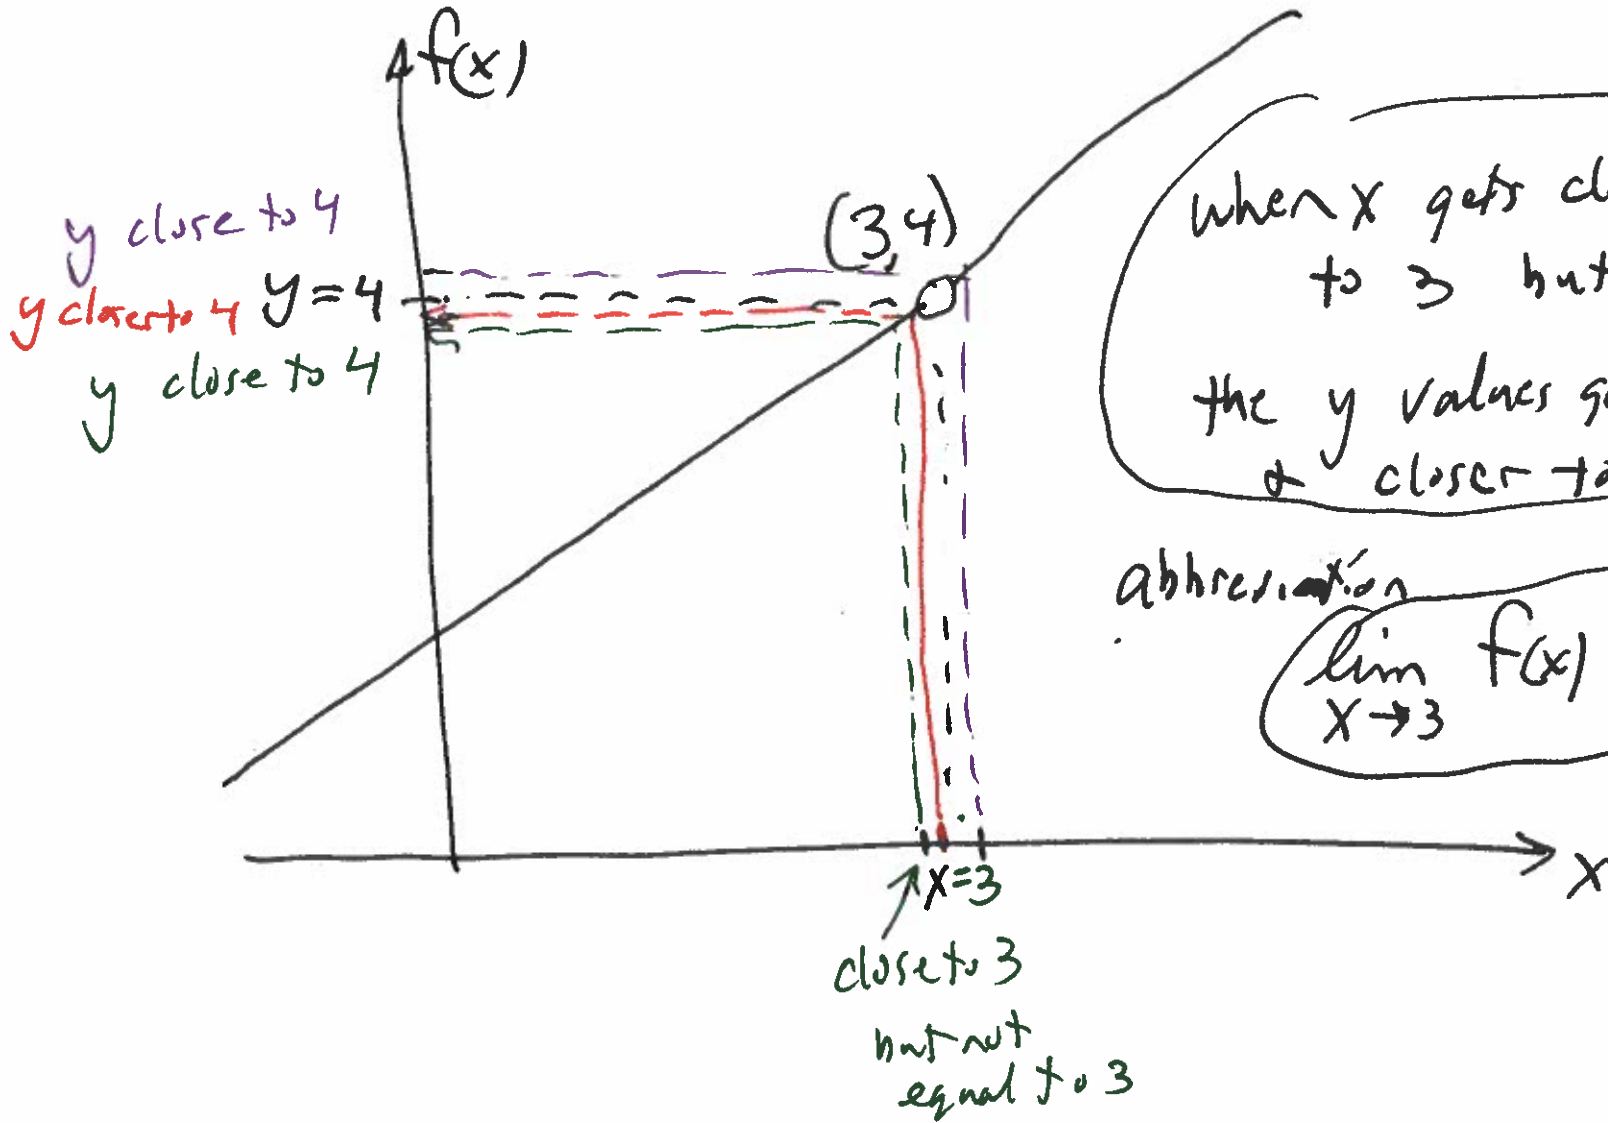 f(x)
(3,4)
y close to 4
y=4
y closer to 4
y close to 4
when x gets cl
to 3 but
the y values g
& closer to
abbreviation
lim f(x)
x→3
x
x=3
close to 3
but not
equal to 3